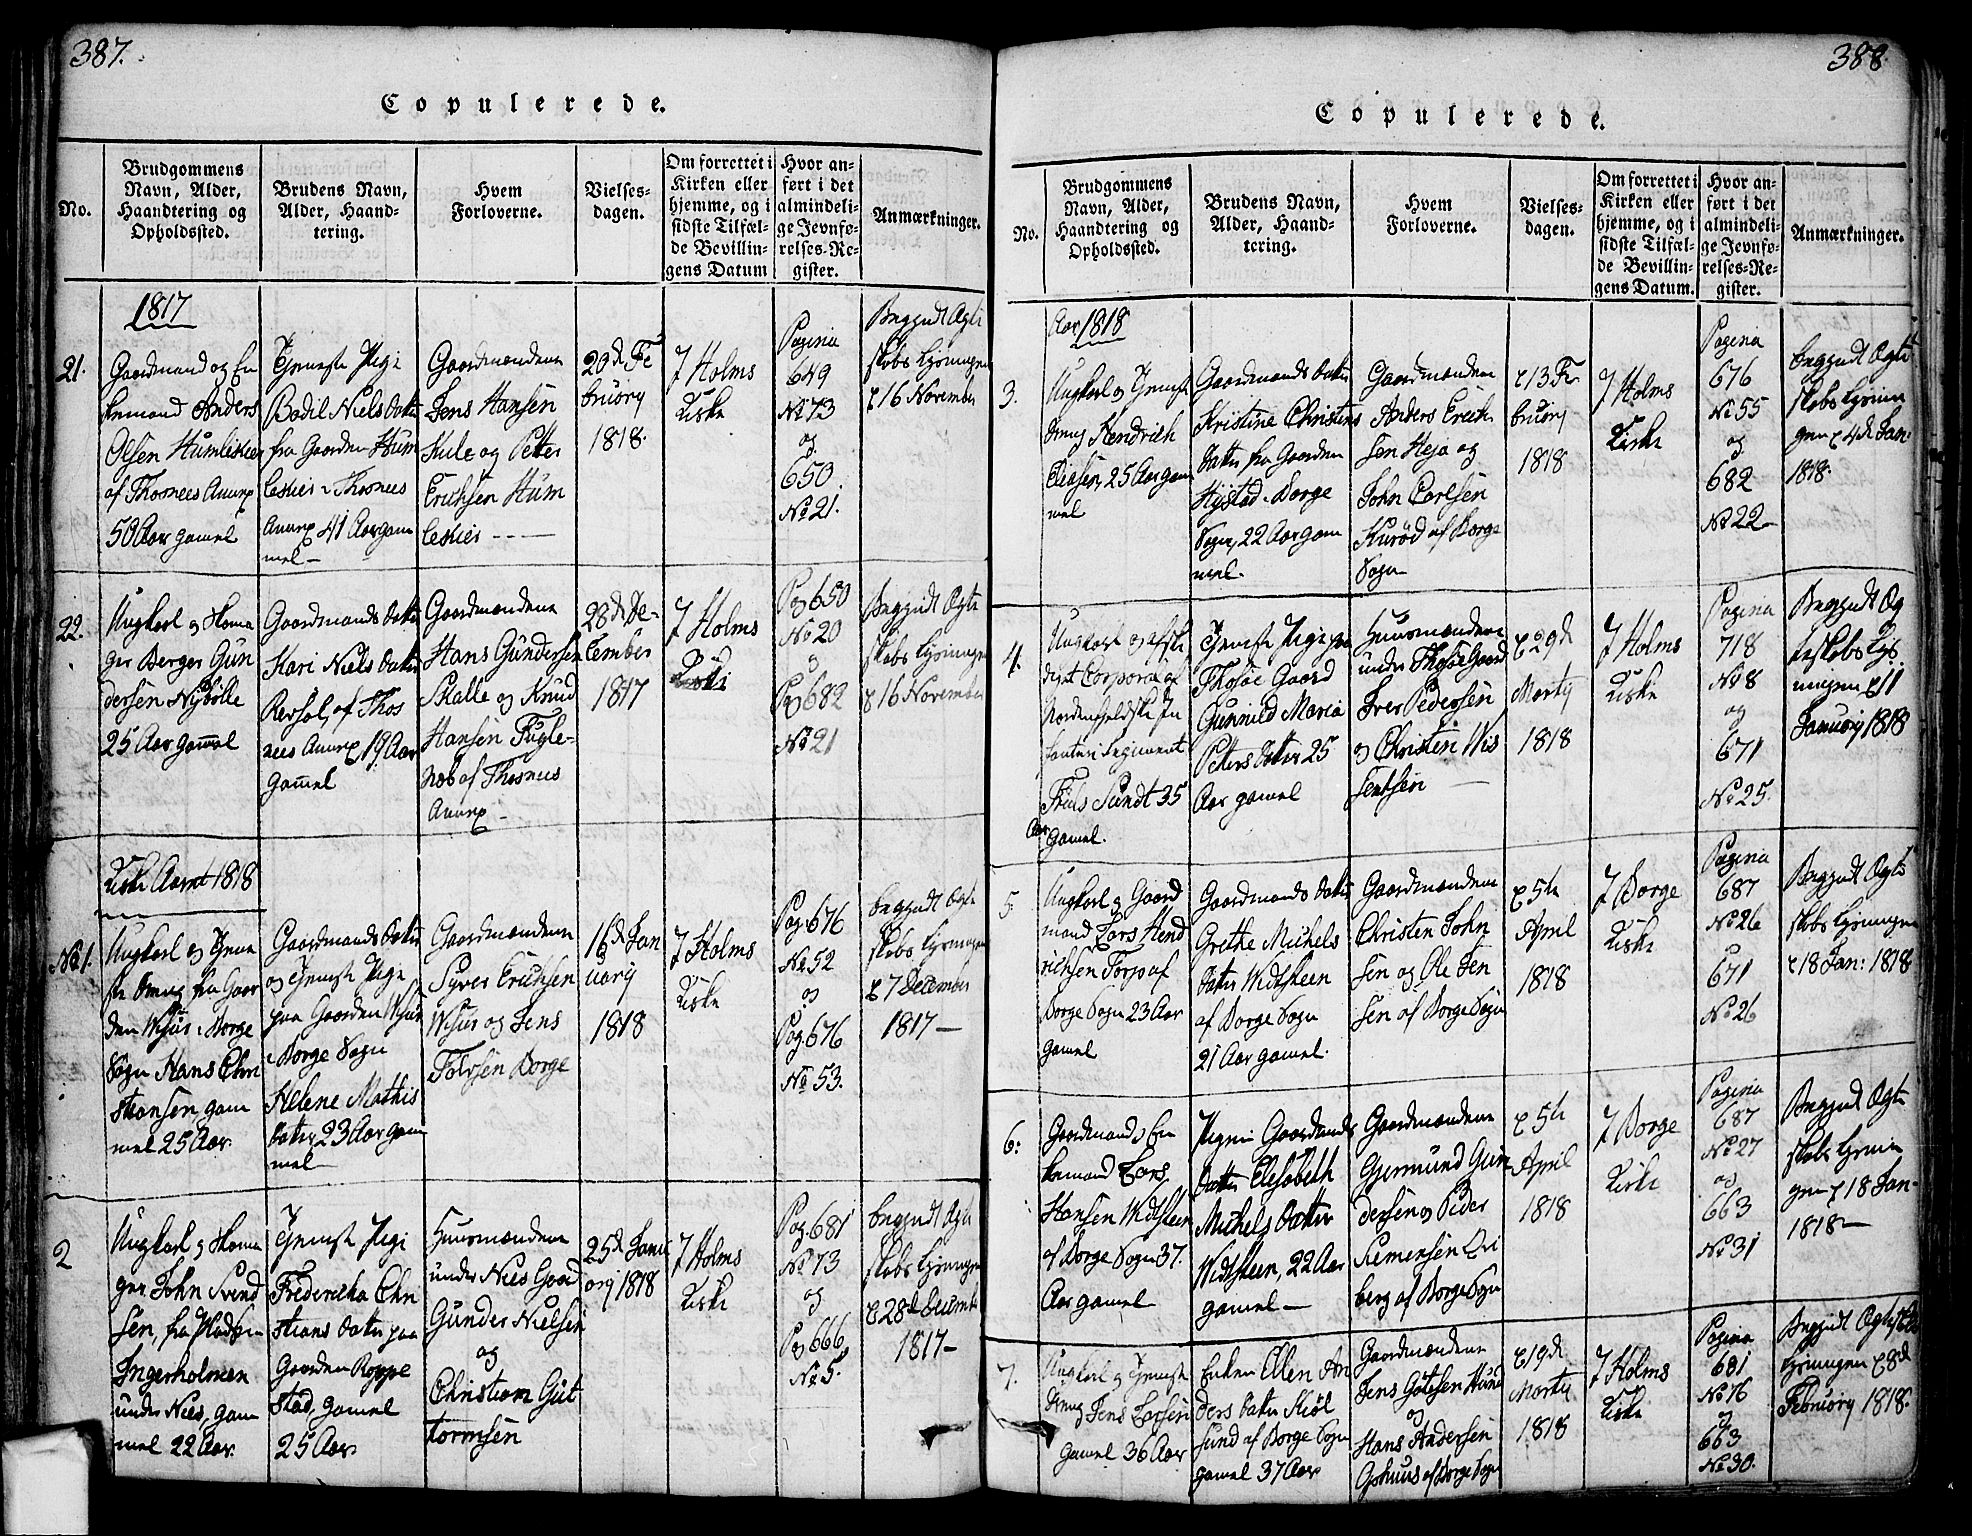 387.
Copulerede.
No.
Brudgommens
Navn, Alder,
Haandtering og
Opholdssted.
Brudens Navn,
Alder, Haand-
tering.
Hvem
Forloverne.
Vielses-
dagen.
Om forrettet i
Kirken eller
hjemme, og i
sidste Tilfæl-
de Bevillin-
gens Datum
Hvor an-
ført i det
almindeli-
ge Jevnfø-
relses-Re-
gister.
Anmærkninger.
1817
21.
Gaardmand og En
kemand Anders
Olsen Humlekier
af Thorsnes Annex
50 Aar gamel
Tjeneste Pige
Bodil Niels Datter
fra Gaarden Hum
lekier i Thorsnes
Annex 41 Aar gam
mel
Gaardmændene
Jens Hansen
Kule og Petter
Erichsen Hum
lekier
20de Fe
bruary
1818.
J Holms
Kirke
Pagina
649
No 73
og
650.
No 21.
Begyndt Ægte
skabs Lysningen
16 November
22.
Ungkarl og
ger Berger Gun
dersen Nybølle
25 Aar gammel
Gaardmands Datter
Kari Niels Datter
af Thos
nees Annex 19 Aar
gammel
Gaardmændene
Hans Gundersen
Skalle og Knud
Hansen Fugle-
af Thosnees
Annex
28de De-
cember
1817
J Holms
Kirke
Pag 650
No 20
og
Pag 682
No 21
Begyndt Ægte
skabs Lysningen
16 November
Kirke Aaret 1818
No 1.
Ungkarl og Tjene
ste Dreng fra Gaar
den Wiser i Borge
Sogn Hans Chri
stiansen, gam
mel 25 Aar
Gaardmands Datter
og Tjeneste Pige
paa Gaarden
i Borge Sogn
Helene Mathis
Datter, 23 Aar gam
mel
Gaardmændene
Syver Erichsen
og Jens
Tolvsen Borge
16de Jan
uary
1818
J Holms
Kirke
Pag 676
No 52
og
Pag 676
No 53.
Begyndt Ægte
skabs Lysningen
7 December
1817
2
Ungkarl og
ger John Svend
sen, fra Pladsen
Ingerholmen
under Nies, gam
mel 22 Aar
Tjeneste Pige
Fredericka Chri
stians Datter paa
Gaarden Roppe
stad, gamel
25 Aar
Huusmændene
under Nies Gaard
Gunder Nielsen
og
Christian Gut
tormsen
25de Janu
ary 1818
J Holms
Kirke
Pag 681
No 73
og
Pag 666
No 5.
Begyndt Ægte
skabs Lysningen
28de December
1817
388.
Copulerede.
No.
Brudgommens
Navn, Alder,
Haandtering og
Opholdssted.
Brudens Navn,
Alder, Haand-
tering.
Hvem
Forloverne.
Vielses-
dagen.
Om forrettet i
Kirken eller
hjemme, og i
sidste Tilfæl-
de Bevillin-
gens Datum.
Hvor an-
ført i det
almindeli-
ge Jevnfø-
relses-Re-
gister.
Anmærkninger.
Aar 1818
3.
Ungkarl og Tjeneste
Dreng Hendrich
25 Aar gam
mel
Gaardmands Datter
Kristine Christens
Datter fra Gaarden
Hystad i Borge
Sogn, 22 Aar gam
mel.
Gaardmændene
Anders Erich
sen Heja og
John Carlsen
Kurød af Borge
Sogn
13 Fe
bruary
1818
J Holms
Kirke
Pagina
676
No 55
og
682
No 22
Begyndt Ægte
skabs Lysnin
gen 4de Jan:
1818.
4.
Ungkarl og
Corporal af
Nordenfjeldske In
fanteri Regiment
Sundt 35
Aar
gamel.
Tjeneste Pige paa
Thosøe Gaard
Gunnild Maria
Petters Datter 25
Aar gamel
Huusmændene
under Thosøe Gaard
Iver Pedersen
og Christen Wis
sentsen
29de
Martz
1818
J Holms
Kirke
Pagina
718
No 8
og
671
No 25.
Begyndt Æg
teskabs Lys
ningen 11
January 1818
5
Ungkarl og Gaard
mand Lars Hend
richsen Torp af
Borge Sogn 23 Aar
gamel
Gaardmands Datter
Grethe Michels
Datter Widtsteen
af Borge Sogn
21 Aar gamel.
Gaardmændene
Christen John
sen og Ole Jen
sen af Borge Sogn
5te
April
1818
J Borge
Kirke
Pagina
687
No 26
671
No 26
Begyndt Ægte
skabs Lysningen
18 Jan: 1818
6:
Gaardmand og En
kemand Lars
Hansen Widtsteen
af Borge Sogn 37.
Aar gamel
Pigen Gaardmands
Datter Elisabeth
Michels Datter
Widtsteen, 22 Aar
gamel
Gaardmændene
Gjermund Gun
dersen og Peder
Siemensen Evi
berg af Borge Sogn
5te
April
1818
J Borge
Kirke
Pagina
687
No 27
og
663
No 31
Begyndt Ægte
skabs Lysnin
gen 18 Jan-
1818
7.
Ungkarl og Tjeneste
Dreng Jens Larsen
gamel 36 Aar
Enken Ellen An
ders Datter Skiøl
sund af Borge Sogn
gamel 37 Aar
Gaardmændene
Jens Gutesen
og
Hans Andersen
af Borge Sogn
19de
Martz
1818
J Holms
Kirke
Pagina
681
No 16
og
663
No 30.
Begyndt Ægteskabs
Lysningen 8de
February 1818.